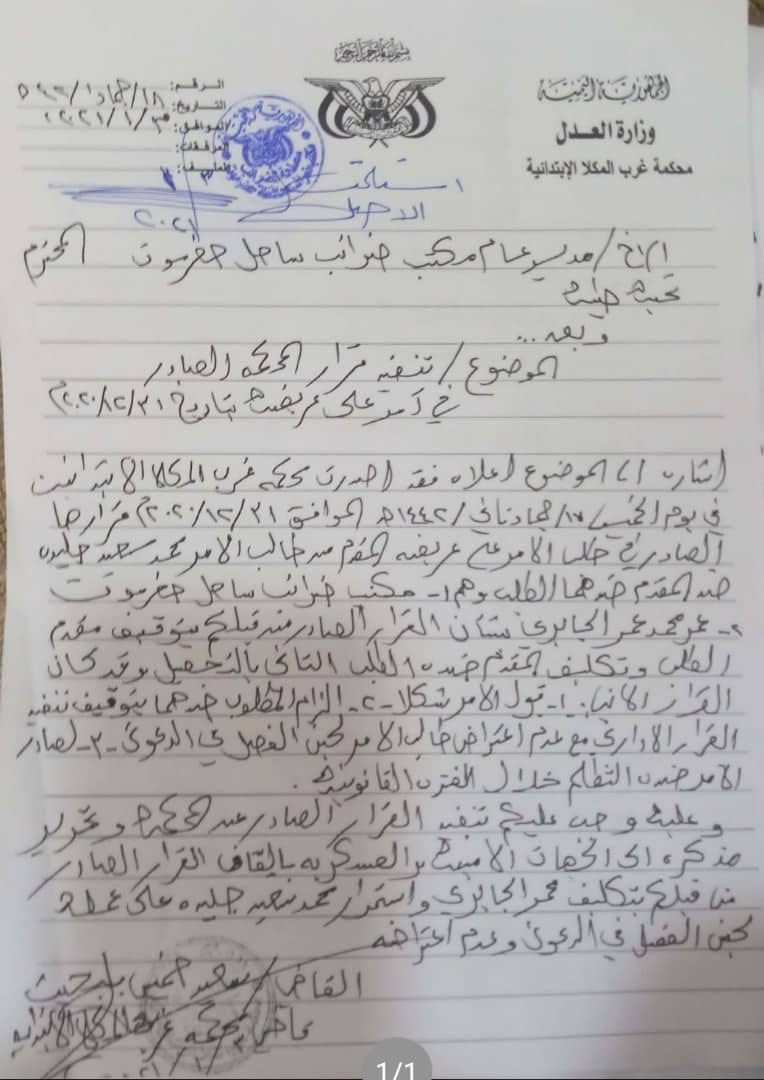 بسم الله الرحمن الرحيم
الجمهورية اليمنية
وزارة العدل
محكمة غرب المكلا الإبتدائية
الرقم:
التاريخ: ١٨/جماد١/
الموافق: ٢٠٢١/١/٣
المرفقات:
استلمت
الاصل
٢٠٢١
الاخ/ مدير عام مكتب ضرائب ساحل حضرموت المحترم
تحية طيبة
وبعد...
الموضوع/ تنفيذ قرار المحكمة الصادر
في أمر على عريضة بتاريخ ٢٠٢٠/١٢/٣١م
إشارة الى الموضوع اعلاه فقد اصدرت محكمة غرب المكلا الابتدائية
في يوم الخميس/ ١٧/جماد ثاني/١٤٤٢ه الموافق ٢٠٢٠/١٢/٣١م قرارها
الصادر في طلب الامر على عريضة المقدم من طالب الامر محمد سعيد
ضد المقدم ضدهما الطلب وهم ١- مكتب ضرائب ساحل حضرموت
٢- عمر محمد عمر الجابري بشأن القرار الصادر من قبلكم بتوقيف مقدم
الطلب وتكليف المقدم ضده الطلب الثاني بالتحصيل وقد كان
القرار الاتي: ١- قبول الامر شكلا ٢- الزام المطلوب ضدهما بتوقيف تنفيذ
القرار الاداري مع عدم اعتراض طالب الامر لحين الفصل في الدعوى ٣- لصادر
الامر ضده التظلم خلال الفترة القانونية.
وعليه وجب عليكم تنفيذ القرار الصادر عن المحكمة وتحرير
مذكرة الى الجهات الامنية والعسكرية بإيقاف القرار الصادر
من قبلكم بتكليف عمر الجابري واستمرار محمد سعيد على عمله
لحين الفصل في الدعوى وعدم اعتراضه
القاضي/ سعيد
قاضي محكمة غرب المكلا الابتدائية
1/1